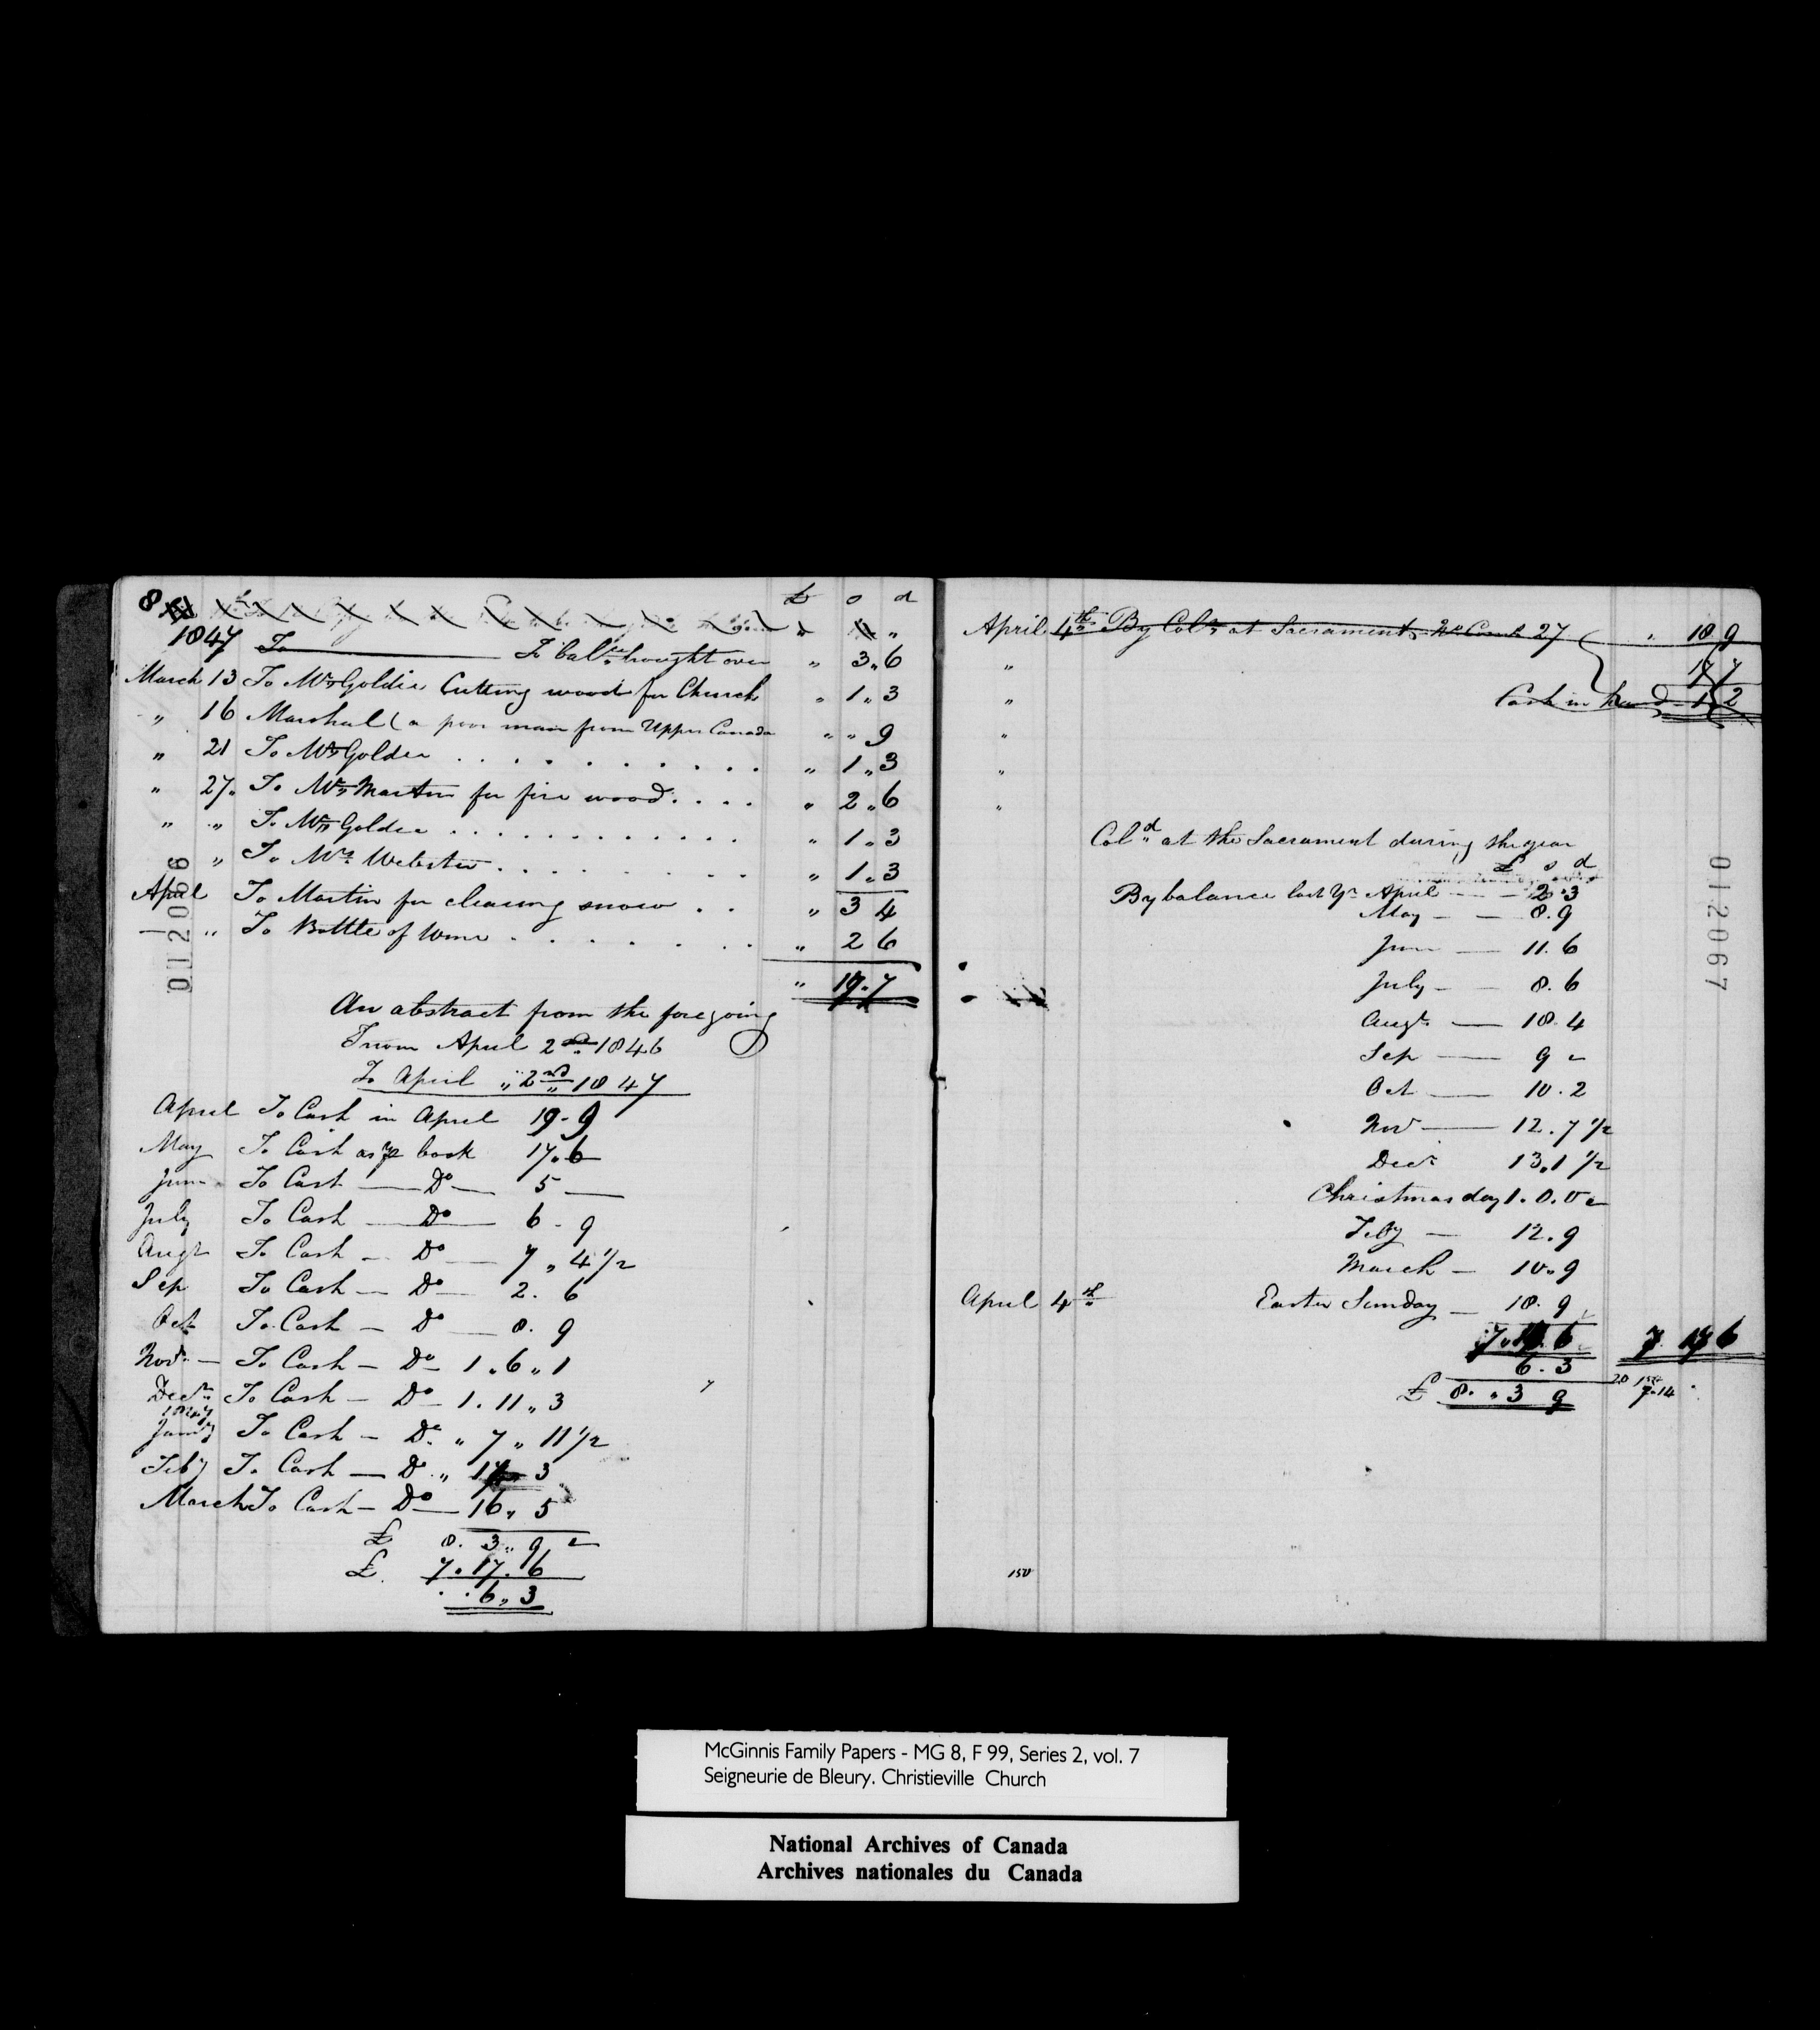 8 £ s d
1847 To balce brought over " 3 " 6
March 13 To Mrs Goldie Cutting wood for Church " 1 " 3
" 16 Marshal (a poor man from Upper Canada " " 9
" 21 To Mrs Goldie . . . . . . . . . . " 1 " 3
" 27. To Mrs Martin for fire wood . . . . " 2 " 6
" " To Mrs Goldie . . . . . . . . . . . " 1 " 3
" To Mrs Webster . . . . . . . . . " 1 " 3
April To Martin for clearing snow . . " 3 4
" To Bottle of Wine . . . . . . . " 2 6
" 17 " 7
An abstract from the foregoing
From April 2nd 1846
To April " 2nd 1847
April To Cash in April 19 - 9
May To Cash as pr book 17 . 6
June To Cash — Do — 5 —
July To Cash — Do — 6 - 9
Augt To Cash — Do — 7 " 4 1/2
Sep To Cash — Do — 2 . 6
Oct To Cash — Do — 8 . 9
Novr — To Cash — Do — 1 " 6 " 1
Decr To Cash — Do — 1 . 11 " 3
1847
Jany To Cash — Do " 7 " 11 1/2
Feby To Cash — Do " 14 3
March To Cash — Do — 16 " 5
£ 8 . 3 " 9
£ 7 . 17 . 6
. . 6 " 3
012066
April 4th By Coln at Sacrament 27 " 18 9
17 7
Cash in hand 1 2
Cold at the Sacrament during the year
£ s d
By balance last yr April — 2 . 3
May — — 8 . 9
June — 11 . 6
July — — 8 . 6
Augt — 18 . 4
Sep — 9
Oct — 10 . 2
Novr — 12 . 7 1/2
Decr 13 . 1 1/2
Christmas day 1 . 0 . 0
Feby — 12 . 9
March — 10 " 9
April 4th Easter Sunday — 18 . 9
7 " 17 6 7 17 6
6 . 3
£ 8 . " 3 9
7-14
150
012067
McGinnis Family Papers - MG 8, F 99, Series 2, vol. 7
Seigneurie de Bleury. Christieville Church
National Archives of Canada
Archives nationales du Canada